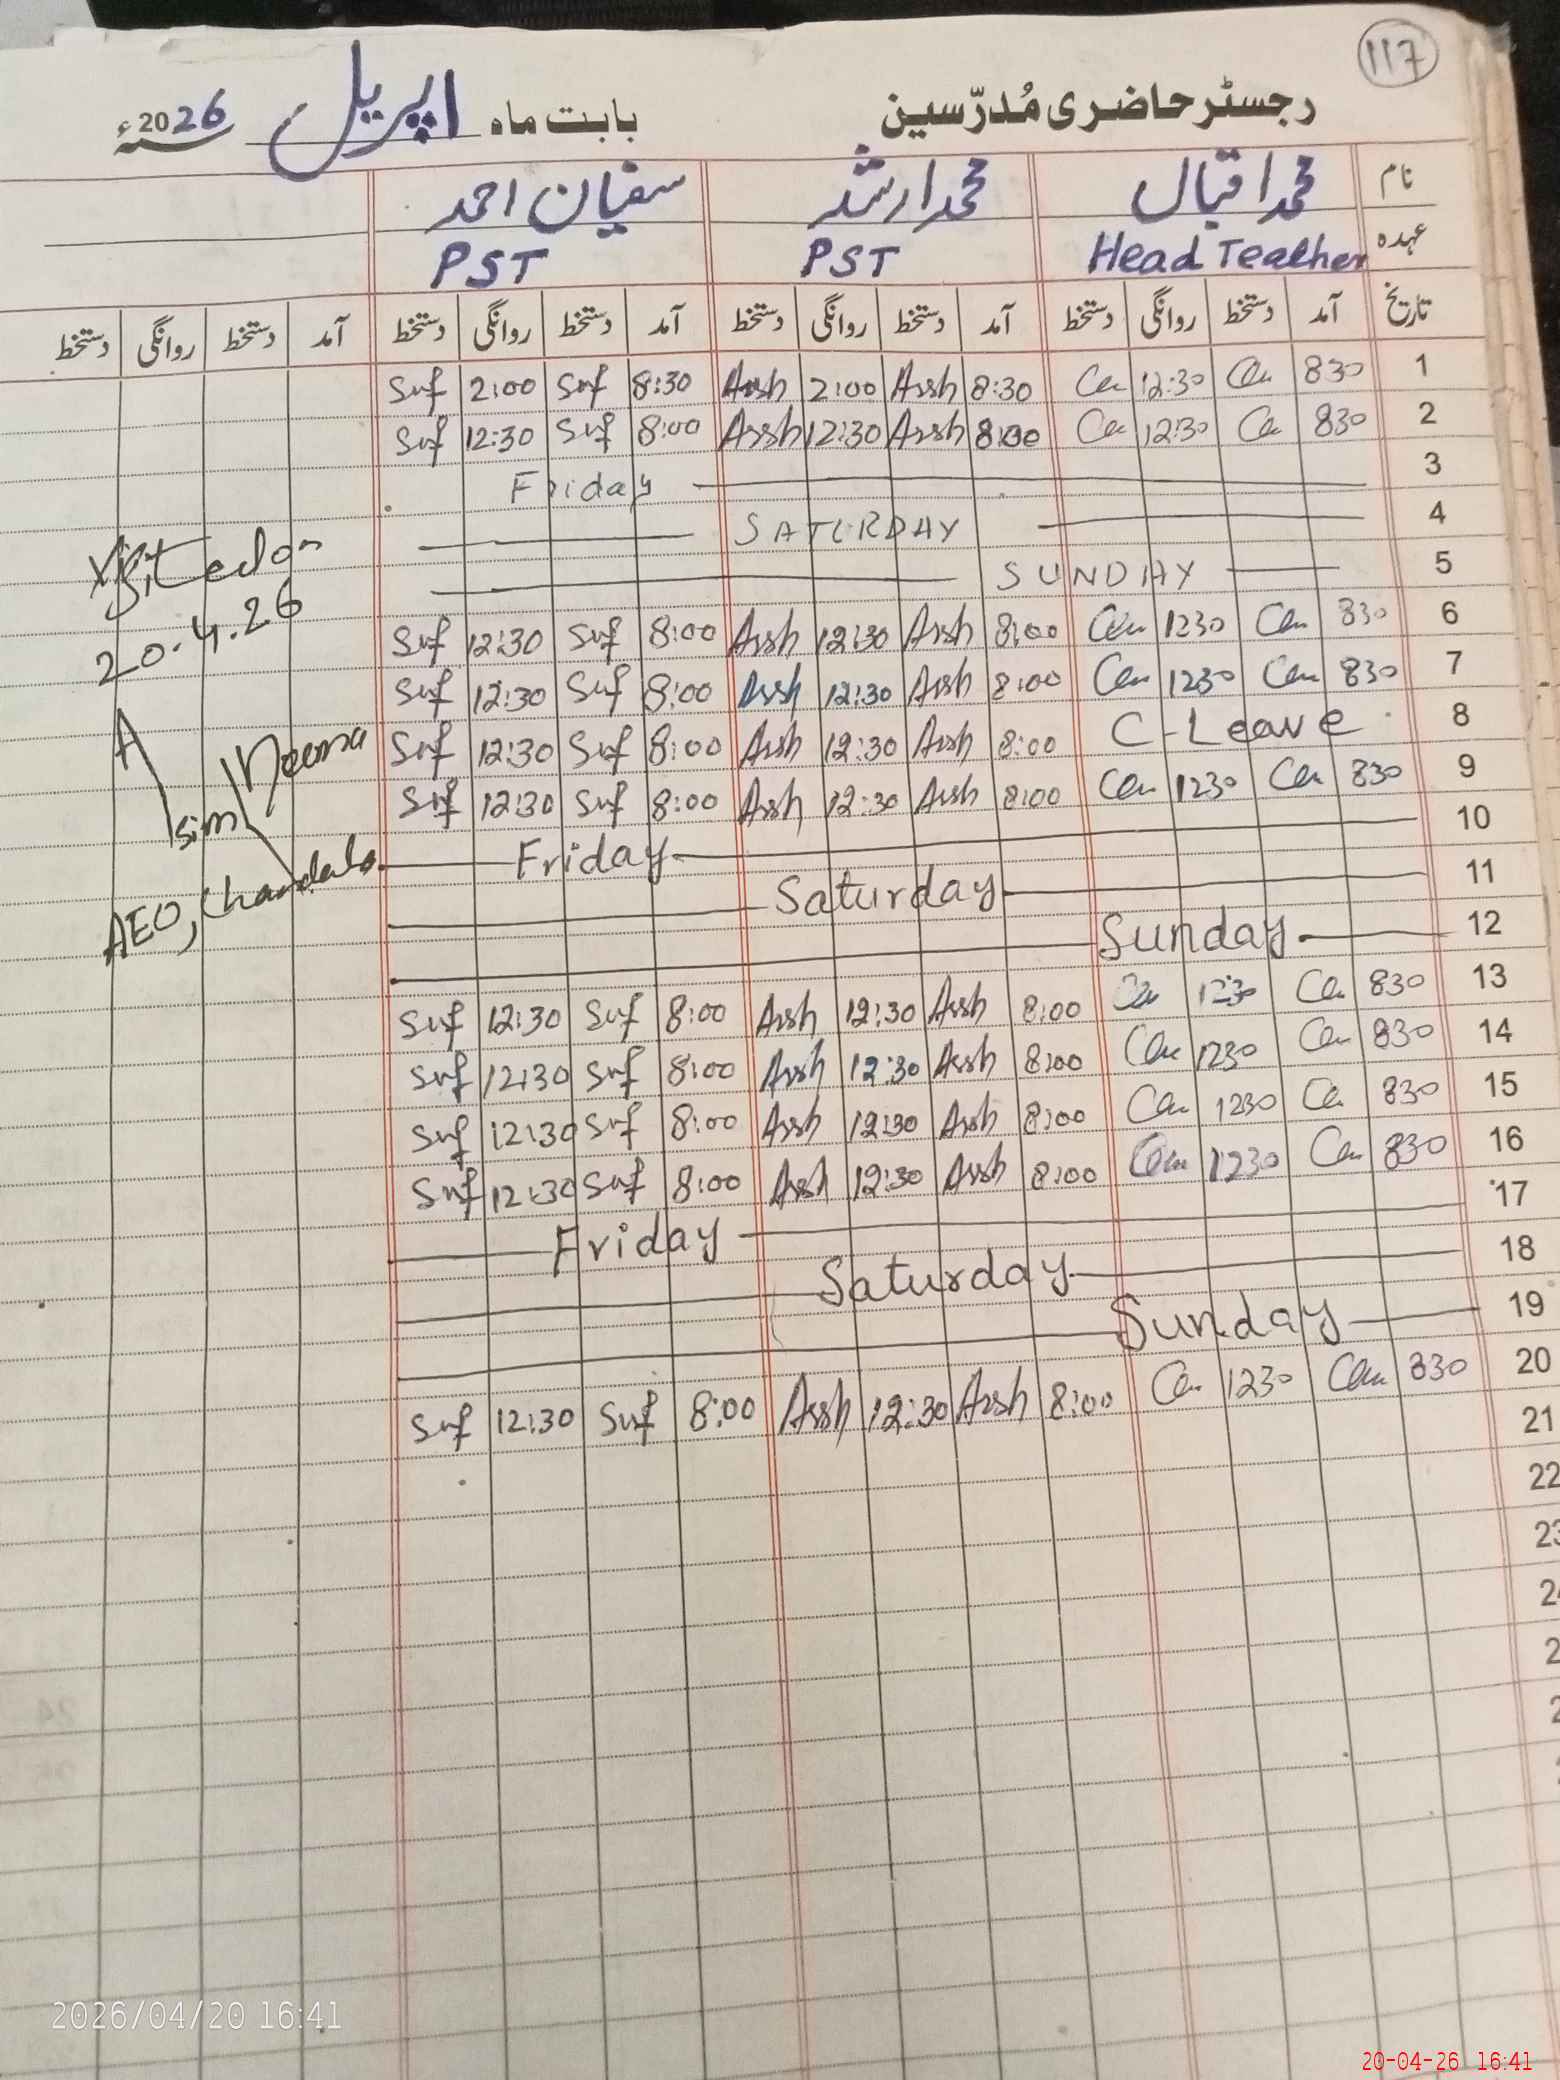 117
رجسٹر حاضری مُدرّسین بابت ماہ اپریل سنہ 2026ء
نام محمد اقبال محمد ارشد سفیان احمد
عہدہ Head Teacher PST PST
تاریخ آمد دستخط روانگی دستخط آمد دستخط روانگی دستخط آمد دستخط روانگی دستخط آمد دستخط روانگی دستخط
Suf 2:00 Suf 8:30 Arsh 2:00 Arsh 8:30 12:30 830 1
Suf 12:30 Suf 8:00 Arsh 12:30 Arsh 8:00 12:30 830 2
Friday 3
SATURDAY 4
SUNDAY 5
Suf 12:30 Suf 8:00 Arsh 12:30 Arsh 8:00 1230 830 6
Suf 12:30 Suf 8:00 Arsh 12:30 Arsh 8:00 1230 830 7
Suf 12:30 Suf 8:00 Arsh 12:30 Arsh 8:00 C-Leave 8
Suf 12:30 Suf 8:00 Arsh 12:30 Arsh 8:00 1230 830 9
Friday 10
Saturday 11
Sunday 12
Suf 12:30 Suf 8:00 Arsh 12:30 Arsh 8:00 1230 830 13
Suf 12:30 Suf 8:00 Arsh 12:30 Arsh 8:00 1230 830 14
Suf 12:30 Suf 8:00 Arsh 12:30 Arsh 8:00 1230 830 15
Suf 12:30 Suf 8:00 Arsh 12:30 Arsh 8:00 1230 830 16
Friday 17
Saturday 18
Sunday 19
Suf 12:30 Suf 8:00 Arsh 12:30 Arsh 8:00 1230 830 20
21
22
23
Visited on
20.4.26
Asim
AEO,
2026/04/20 16:41
20-04-26 16:41